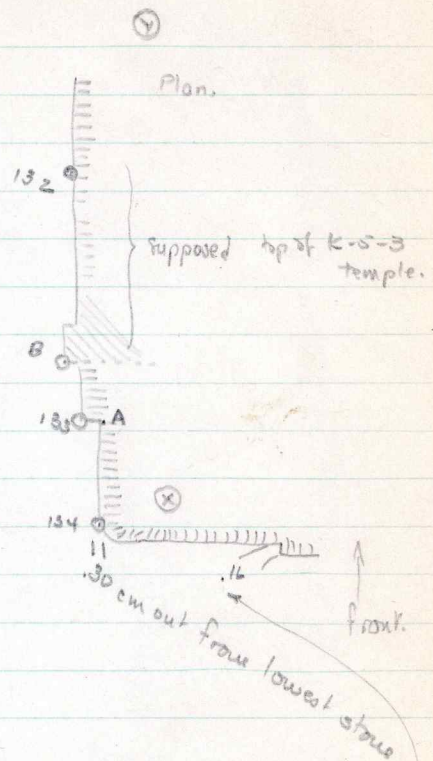 Y
Plan.
132
supposed top of K-5-3
temple.
B
133
A
X
134
11
.30 cm out from lowest stone
.16
front.